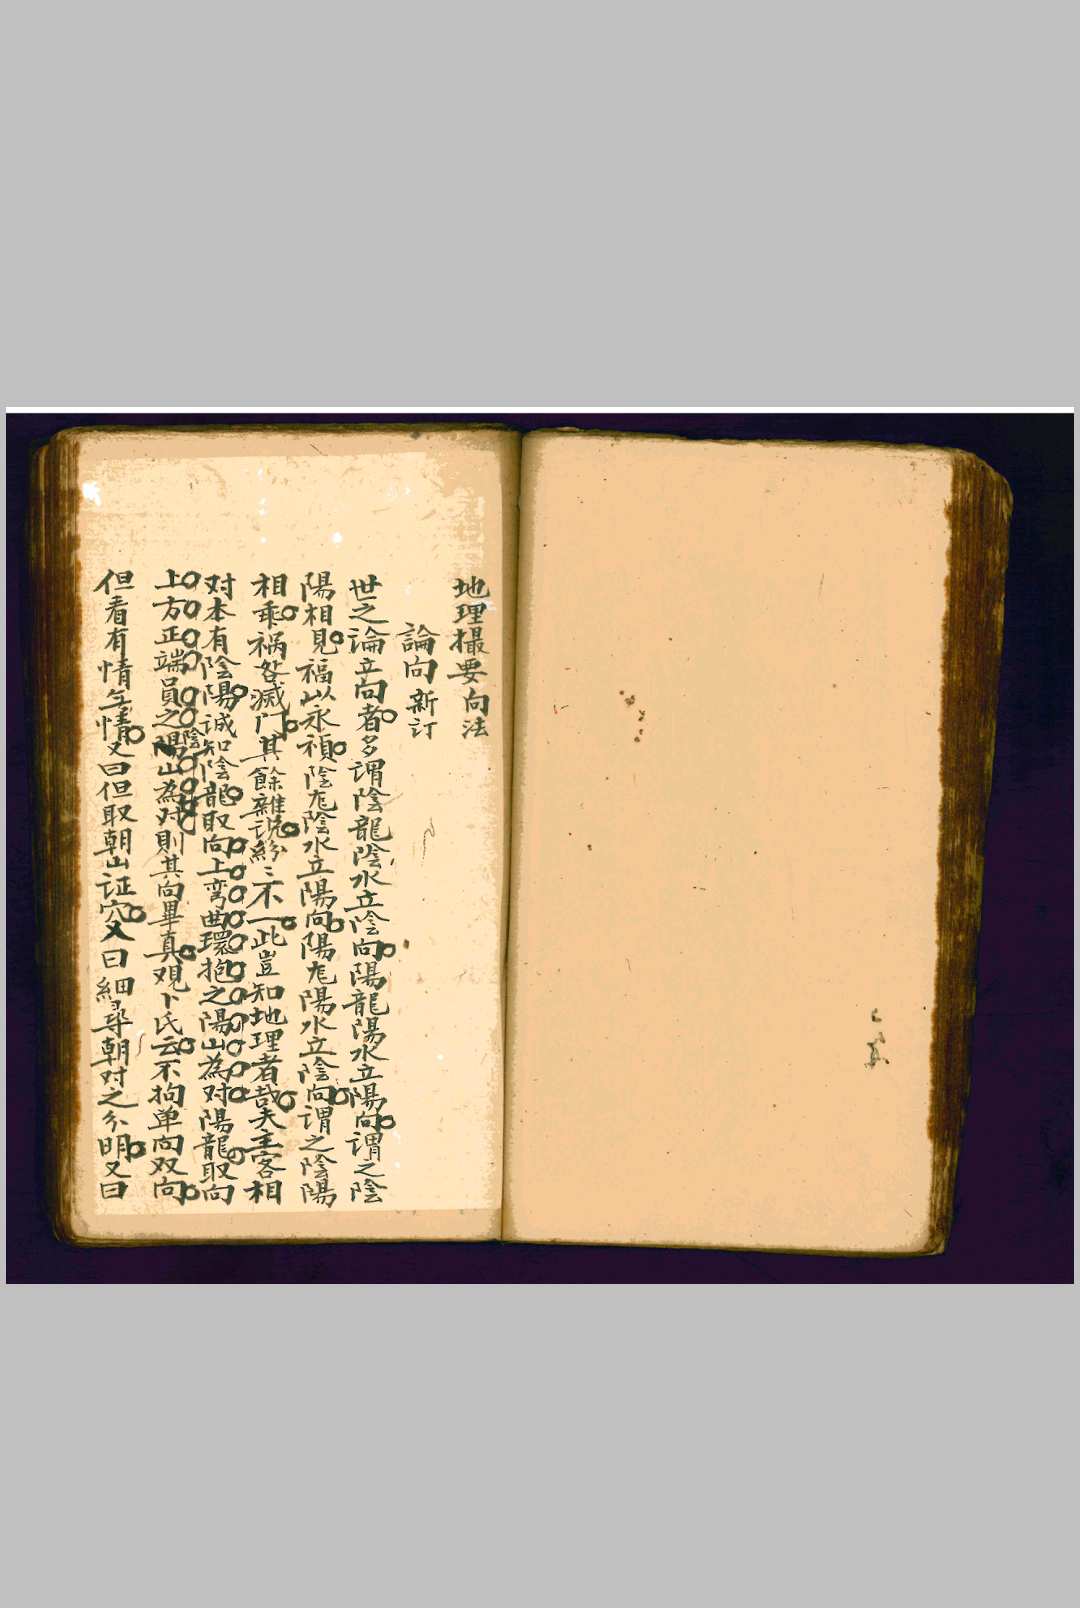 地理撮要向法
論向新訂
世之論立向者多謂陰龍陰水立陰向陽龍陽水立陽向謂之陰
陽相見福以永禎陰龙陰水立陽向陽龙陽水立陰向謂之陰陽
相乖祸咎滅门其餘雜説紛〻不一此豈知地理者哉夫主客相
对本有陰陽诚知陰龍取向上弯曲環抱之陽山為对陽龍取向
上方正端員之陰山為对則其向畢真观卜氏云不拘单向双向
但看有情無情又曰但取朝山证穴又曰細尋朝对之分明又曰